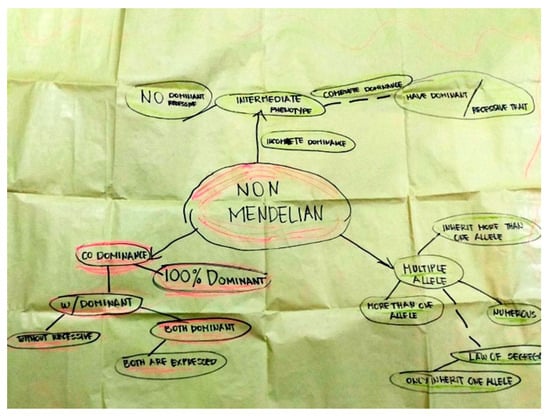 NO DOMINANT
RECESSIVE
INTERMEDIATE
PHENOTYPE
COMPLETE DOMINANCE
HAVE DOMINANT /
RECESSIVE TRAIT
INCOMPLETE DOMINANCE
NON
MENDELIAN
CO DOMINANCE
100% DOMINANT
W/ DOMINANT
WITHOUT RECESSIVE
BOTH DOMINANT
BOTH ARE EXPRESSED
INHERIT MORE THAN
ONE ALLELE
MULTIPLE
ALLELE
MORE THAN ONE
ALLELE
NUMEROUS
LAW OF SEGREGA
ONLY INHERIT ONE ALLELE